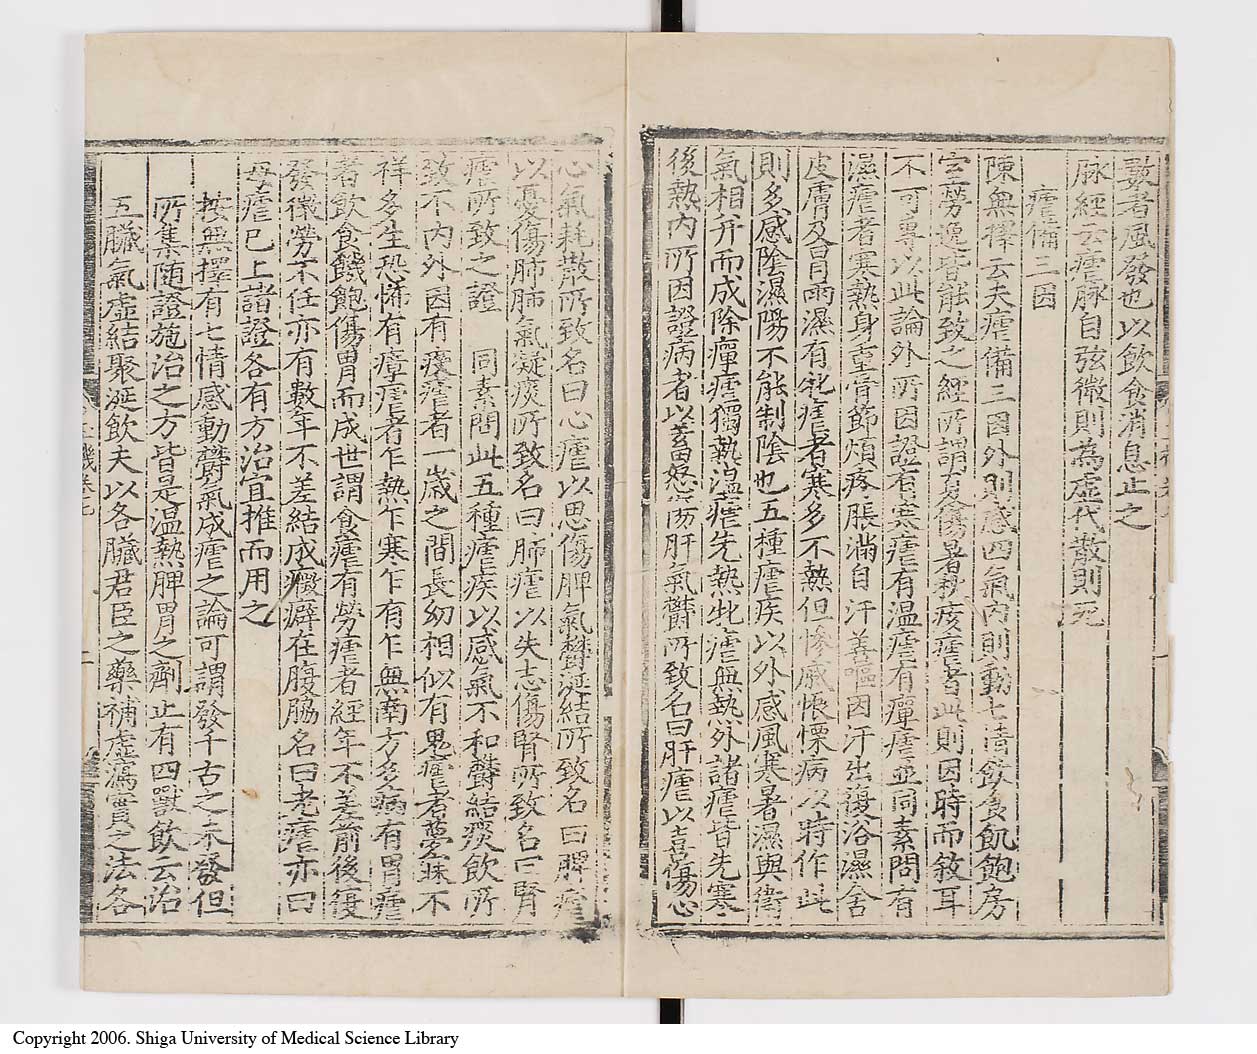 數者風發也以飲食消息止之
脉經云瘧脉自弦微則為虛代散則死
瘧備三因
陳無擇云夫瘧備三因外則感四氣內則動七情飲食飢飽房
室勞逸皆能致之經所謂夏傷暑秋痎瘧者此則因時而敘耳
不可專以此論外所因證有寒瘧有温瘧有癉瘧並同素問有
濕瘧者寒熱身重骨節煩疼脹滿自汗善嘔因汗出復浴濕舍
皮膚及冒雨濕有牝瘧者寒多不熱但慘戚悵慄病以時作此
則多感陰濕陽不能制陰也五種瘧疾以外感風寒暑濕與衛
氣相并而成除癉瘧獨熱温瘧先熱牝瘧無熱外諸瘧皆先寒
後熱內所因證病者以蓄怒傷肝肝氣欝所致名曰肝瘧以喜傷心
心氣耗散所致名曰心瘧以思傷脾脾氣欝涎結所致名曰脾瘧
以憂傷肺肺氣凝痰所致名曰肺瘧以失志傷腎所致名曰腎
瘧所致之證 同素問此五種瘧疾以感氣不和欝結痰飲所
致不內外因有疫瘧者一歲之間長幼相似有鬼瘧者夢寐不
祥多生恐怖有瘴瘧者乍熱乍寒乍有乍無南方多病有胃瘧
者飲食饑飽傷胃而成世謂食瘧有勞瘧者經年不差前後復
發微勞不任亦有數年不差結成癥癖在腹脇名曰老瘧亦曰
母瘧已上諸證各有方治宜推而用之
按無擇有七情感動欝氣成瘧之論可謂發千古之未發但
所集随證施治之方皆是温熱脾胃之劑止有四獸飲云治
五臟氣虛結聚涎飲夫以各臟君臣之藥補虛瀉實之法各